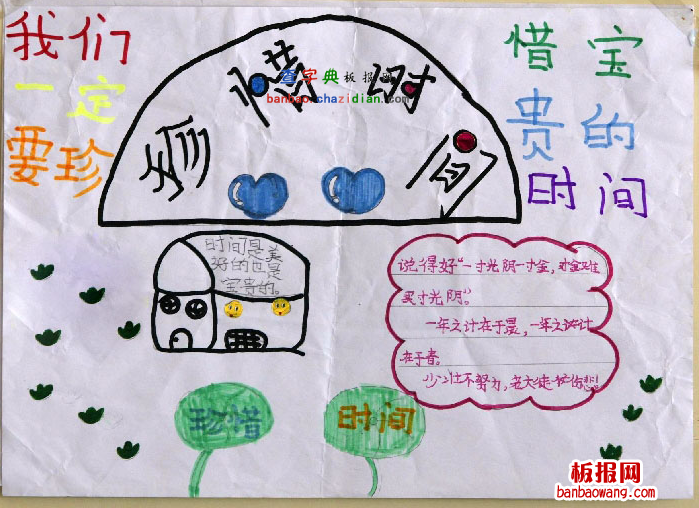 我们
一定
要珍
珍惜时间
查字典板报
banbao.chazidian.com
惜宝
贵的
时间
时间是美
好的也是
宝贵的。
说得好“一寸光阴一寸金,寸金难
买寸光阴。”
一年之计在于晨,一年之计
在于春。
少壮不努力,老大徒伤悲!
珍惜
时间
板报网
banbaowang.com